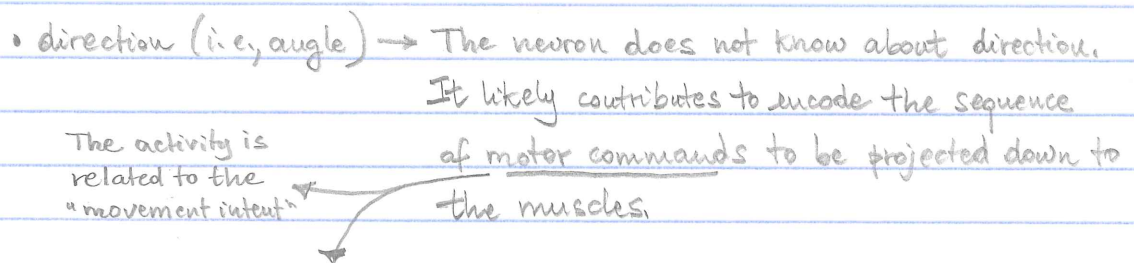 • direction (i.e., angle) → The neuron does not know about direction.
It likely contributes to encode the sequence
of motor commands to be projected down to
the muscles.
The activity is
related to the
"movement intent"